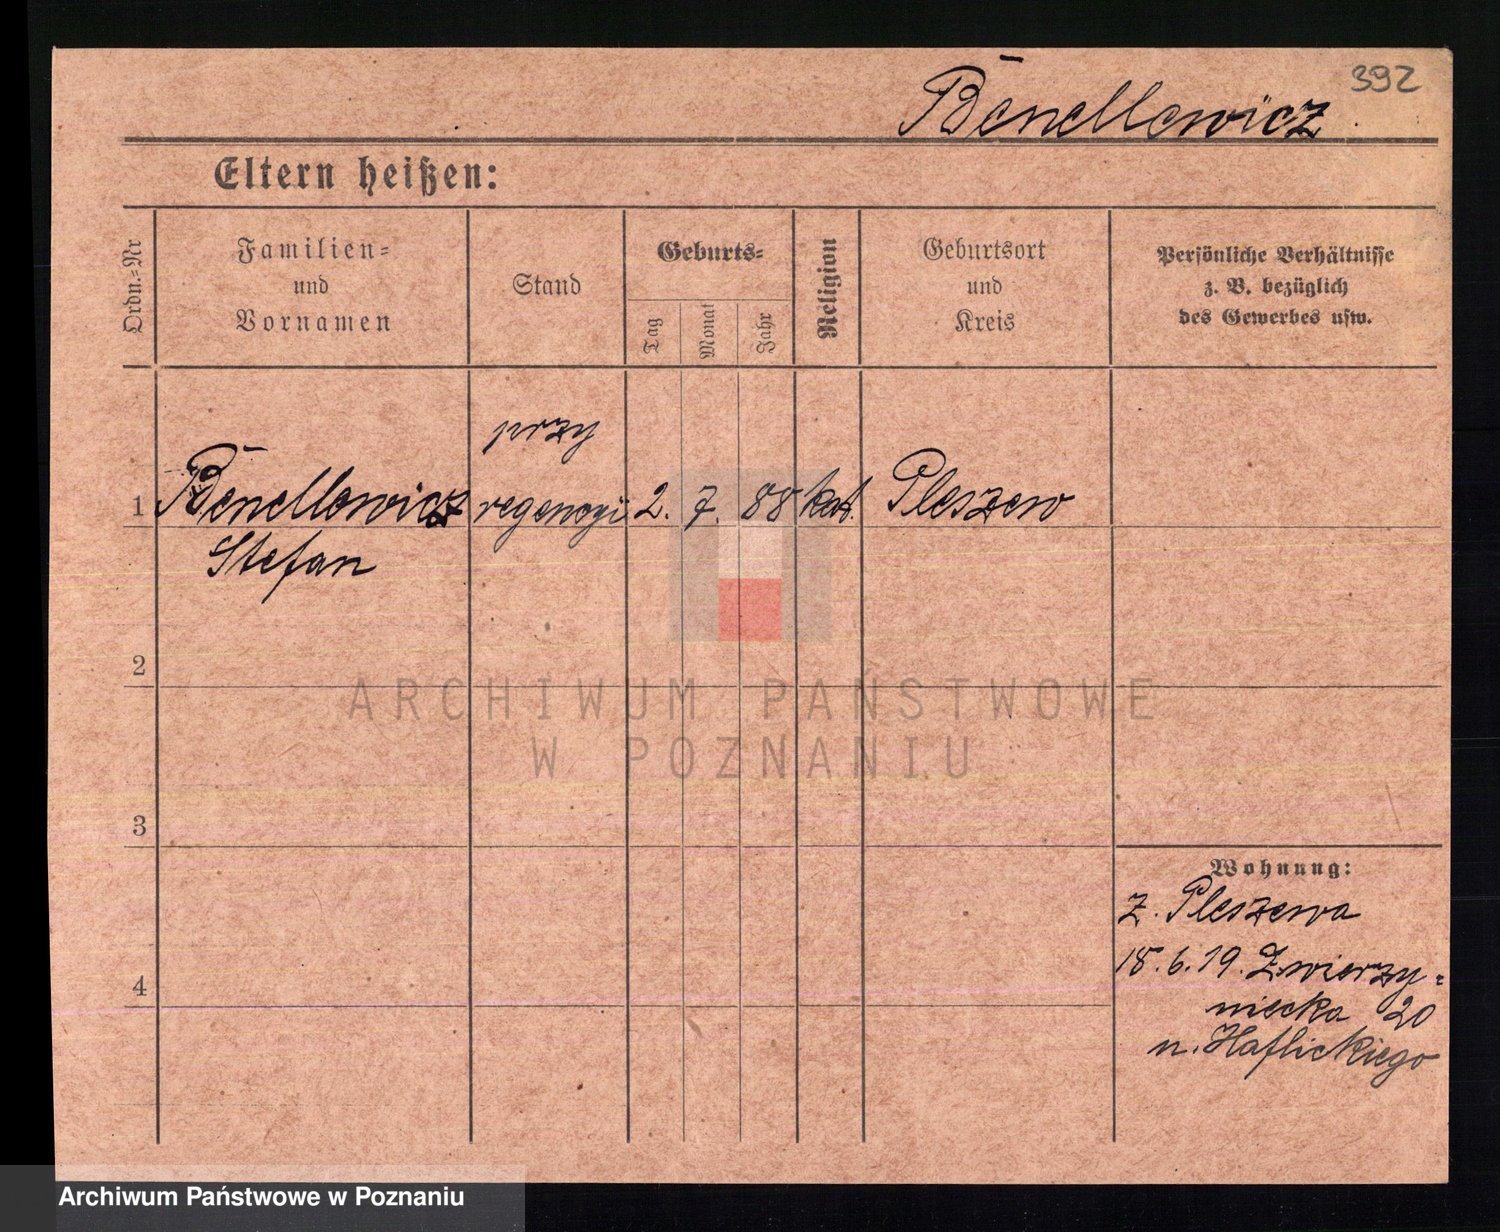 392
Benellewicz
Eltern heißen:
Ordn.=Nr
Familien=
und
Vornamen
Stand
Geburts=
Tag
Monat
Jahr
Religion
Geburtsort
und
Kreis
Persönliche Verhältnisse
z. B. bezüglich
des Gewerbes usw.
przy
1 Benellewicz regencyi 2. 7. 88 kat. Pleszew
Stefan
2
ARCHIWUM PAŃSTWOWE
W POZNANIU
3
Wohnung:
z. Pleszewa
18.6.19. Zwierzy=
niecka 20
4
u. Haflickiego
Archiwum Państwowe w Poznaniu